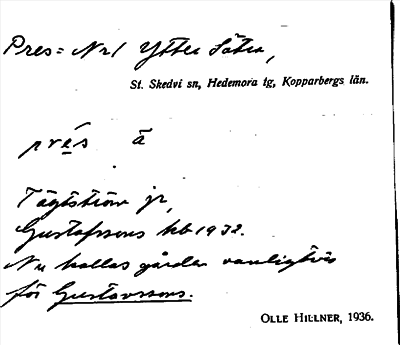 Pres= Nr 1 Ytter Säter,
St. Skedvi sn, Hedemora tg, Kopparbergs län.
prẹ́s ä
Tägtström jr,
Gustafssons hb 1932.
Nu kallas gården vanligtvis
för Gustavssons.
OLLE HILLNER, 1936.